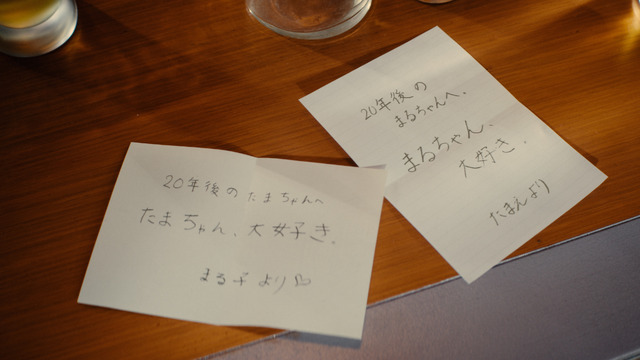 20年後のたまちゃんへ
たまちゃん、大好き。
まる子より
20年後の
まるちゃんへ、
まるちゃん、
大好き。
たまえより